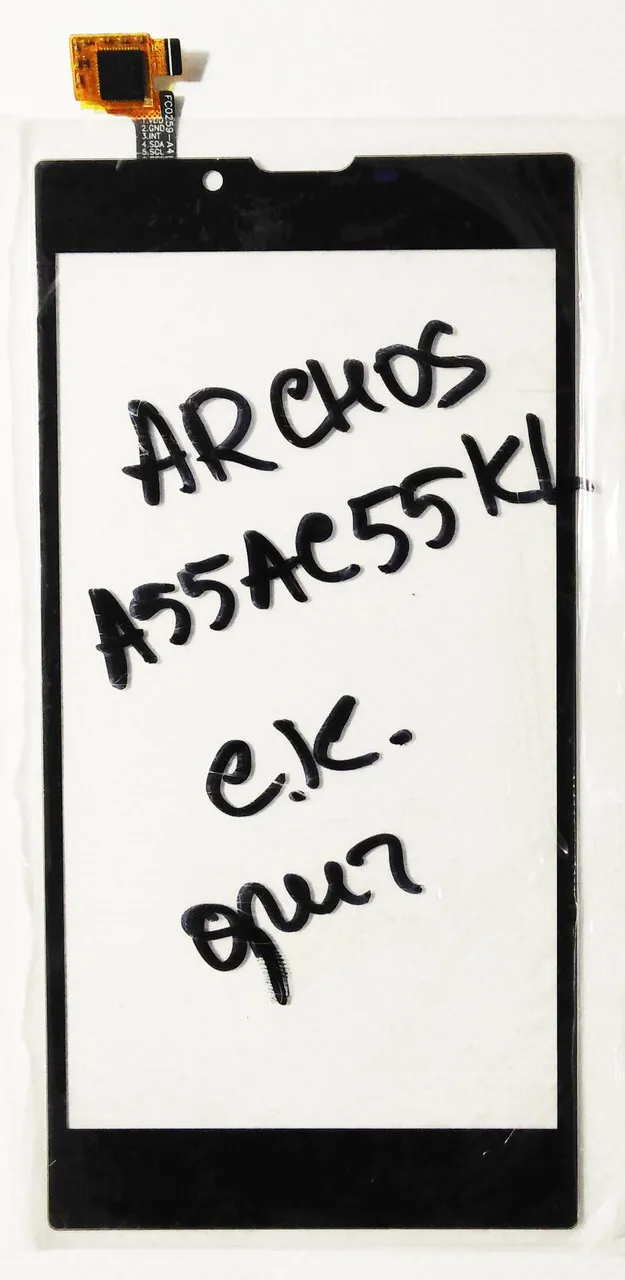 FC0259-A4
1.VDD
2.GND
3.INT
4.SDA
5.SCL
ARCHOS
A55AC55KL
С.К.
ориг